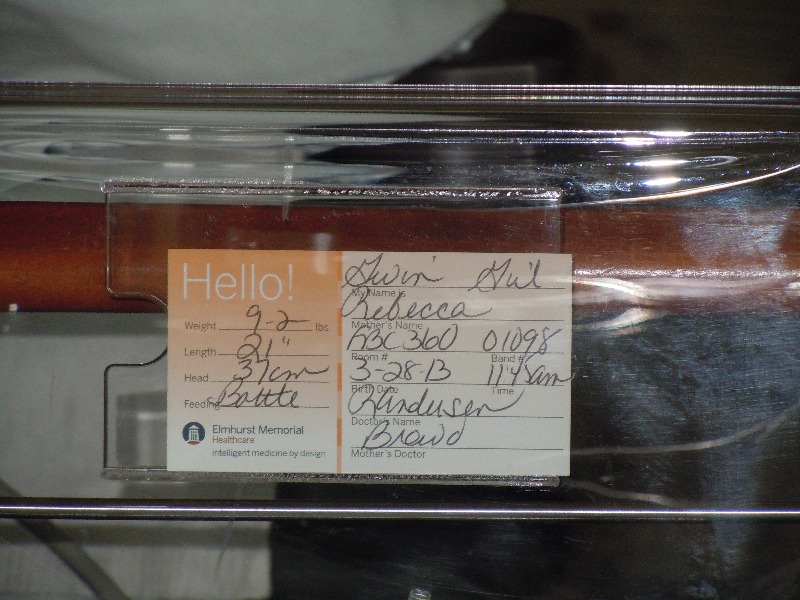 Hello!
Weight 9-2 lbs.
Length 21"
Head 37cm
Feeding Bottle
Elmhurst Memorial
Healthcare
intelligent medicine by design
Girl
My Name is
Rebecca
Mother's Name
360 01098
Room # Band #
3-28-13 11:45am
Birth Date Time
Doctor's Name
Mother's Doctor